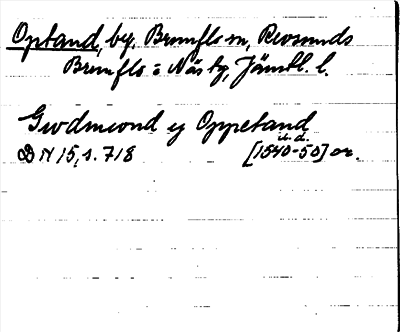 Optand, by, Brunflo sn, Revsunds
Brunflo o Näs tg, Jämtl. l.
Gwdmwnd y Oppetand
u. d.
DN 15, s. 718 [1540-50] or.